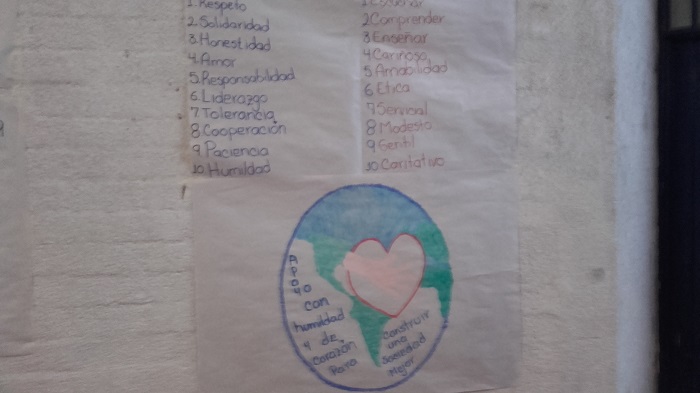 1. Respeto
2. Solidaridad
3. Honestidad
4. Amor
5. Responsabilidad
6. Liderazgo
7. Tolerancia
8. Cooperación
9. Paciencia
10. Humildad
1. Escuchar
2. Comprender
3. Enseñar
4. Cariñoso
5. Amabilidad
6. Etica
7. Servicial
8. Modesto
9. Gentil
10. Caritativo
Apoyo
con
humildad
y de
corazón
Para
construir
una
sociedad
Mejor